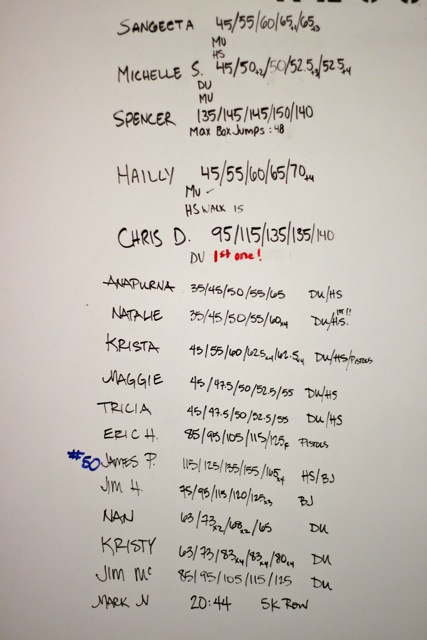 SANGEETA 45/55/60/65x4/65x3
MU
HS
MICHELLE S. 45/50x2/50/52.5x3/52.5x4
DU
MU
SPENCER 135/145/145/150/140
MAX BOX JUMPS: 48
HAILLY 45/55/60/65/70x4
MU ✓
HS WALK 15
CHRIS D. 95/115/135/135/140
DU 1st one!
ANAPURNA 35/45/50/55/65 DU/HS
NATALIE 35/45/50/55/60x4 DU/HS 1st!!
KRISTA 45/55/60/62.5x4/62.5x4 DU/HS/PISTOLS
MAGGIE 45/47.5/50/52.5/55 DU/HS
TRICIA 45/47.5/50/52.5/55 DU/HS
ERIC H. 85/95/105/115/125F PISTOLS
#50 JAMES P. 115/125/135/155/165x4 HS/BJ
JIM H. 75/95/115/120/125x3 BJ
NAN 63/73x2/68x2/65 DU
KRISTY 63/73/83x4/83x4/80x4 DU
JIM Mc 85/95/105/115/125 DU
MARK N 20:44 5K ROW